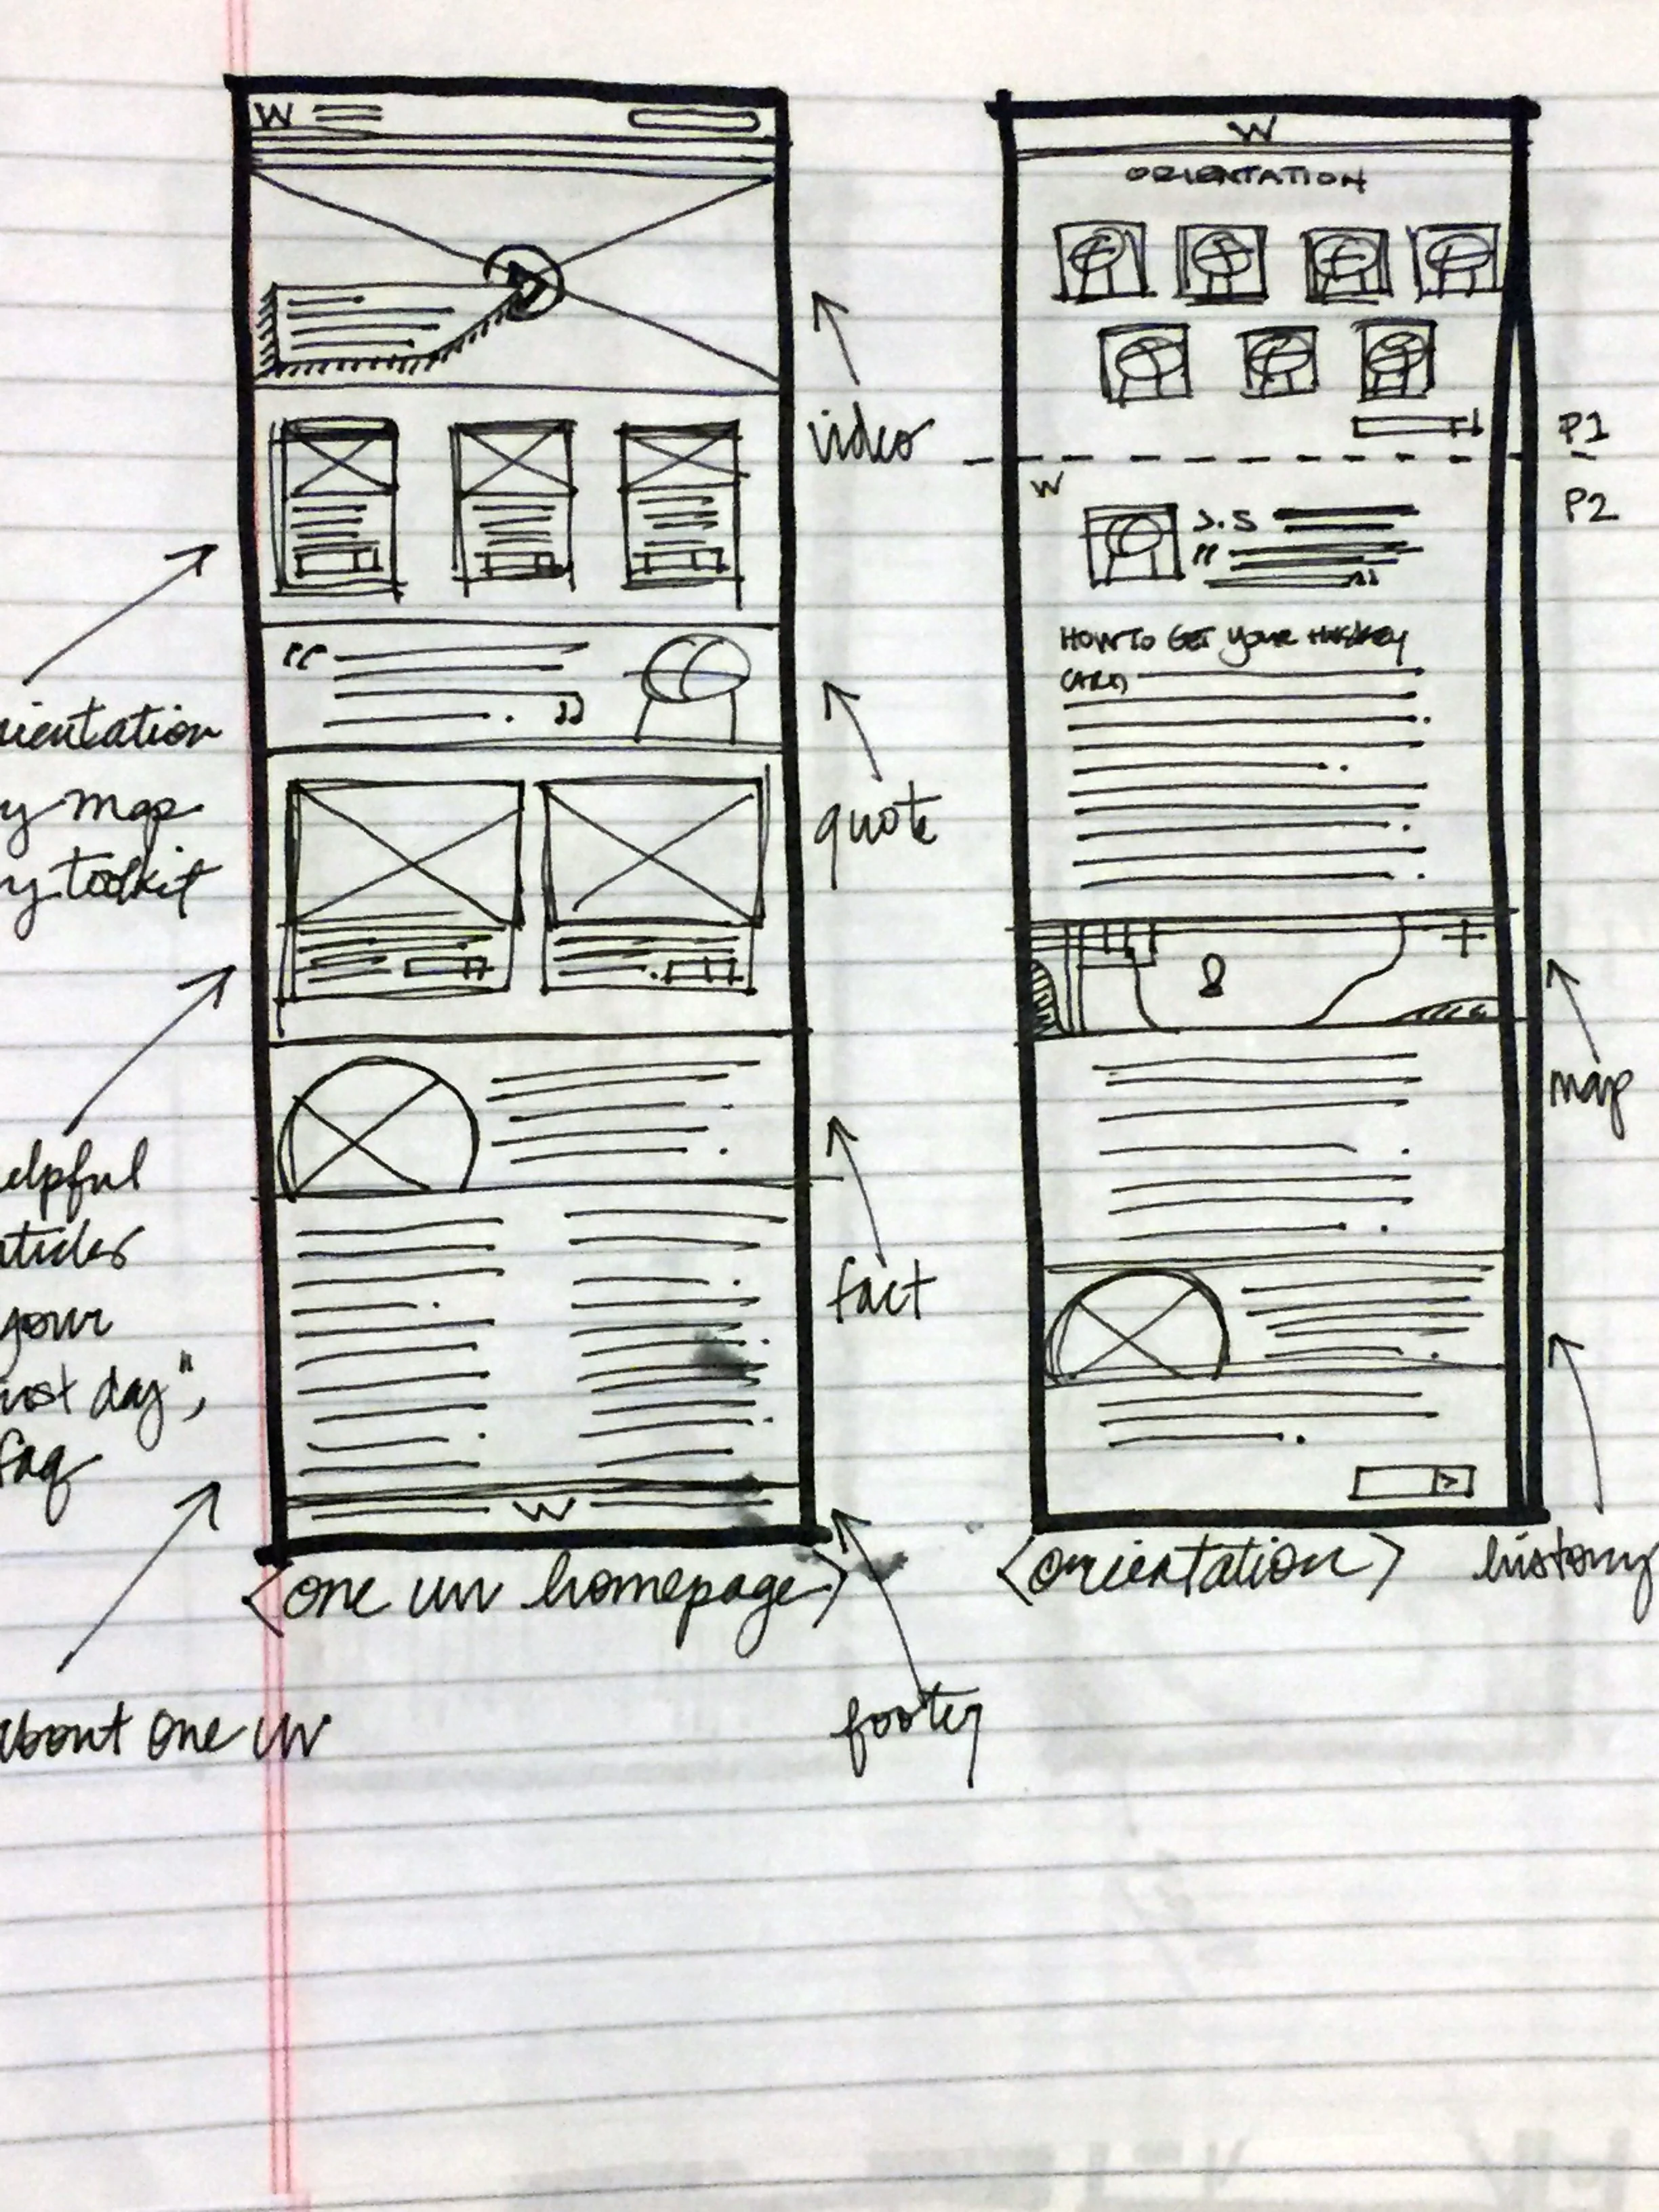 W
video
rientation
y map
y toolkit
quote
elpful
rticles
your
irst day",
faq
fact
W
<one uw homepage>
about one uw
footer
W
ORIENTATION
P1
P2
W
J.S
HOW TO GET your HUSKEY
CARD
map
<orientation>
history